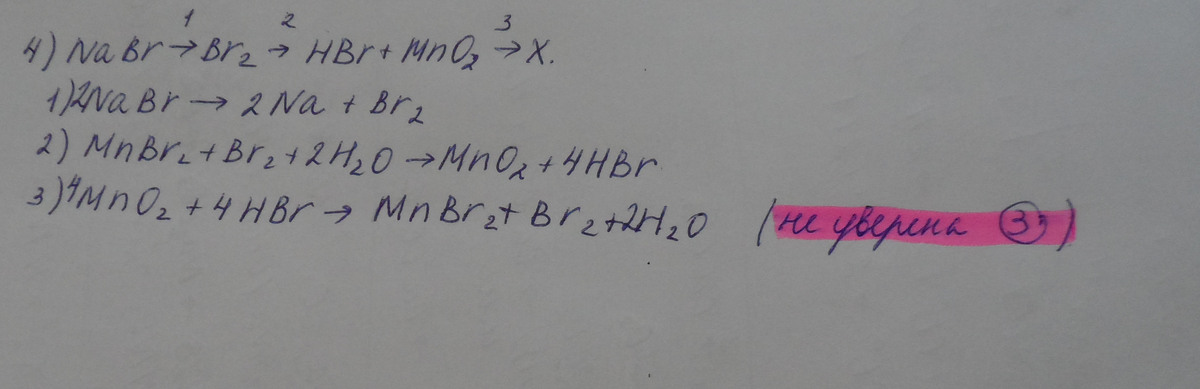 4) NaBr →1 Br₂ →2 HBr + MnO₂ →3 X.
1) 2NaBr → 2Na + Br₂
2) MnBr₂ + Br₂ + 2H₂O → MnO₂ + 4HBr
3) 4MnO₂ + 4HBr → MnBr₂ + Br₂ + 2H₂O (не уверена 3))